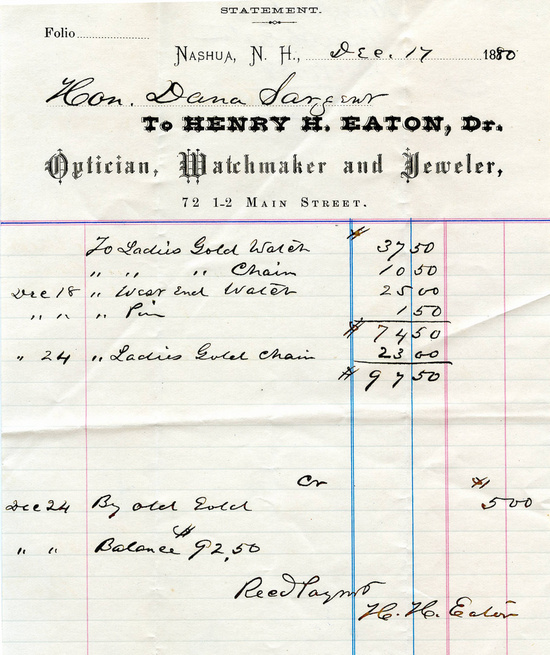 STATEMENT.
Folio
NASHUA, N. H., Dec. 17 1880
Hon. Dana Sargent
To HENRY H. EATON, Dr.
Optician, Watchmaker and Jeweler,
72 1-2 MAIN STREET.
To Ladies Gold Watch $ 37 50
" " " Chain 10 50
Dec 18 " West End Watch 25 00
" " " Pin 1 50
$ 74 50
" 24 " Ladies Gold Chain 23 00
$ 97 50
Cr $
Dec 24 By old Gold 5 00
" " Balance $ 92,50
Recd Paymt
H. H. Eaton